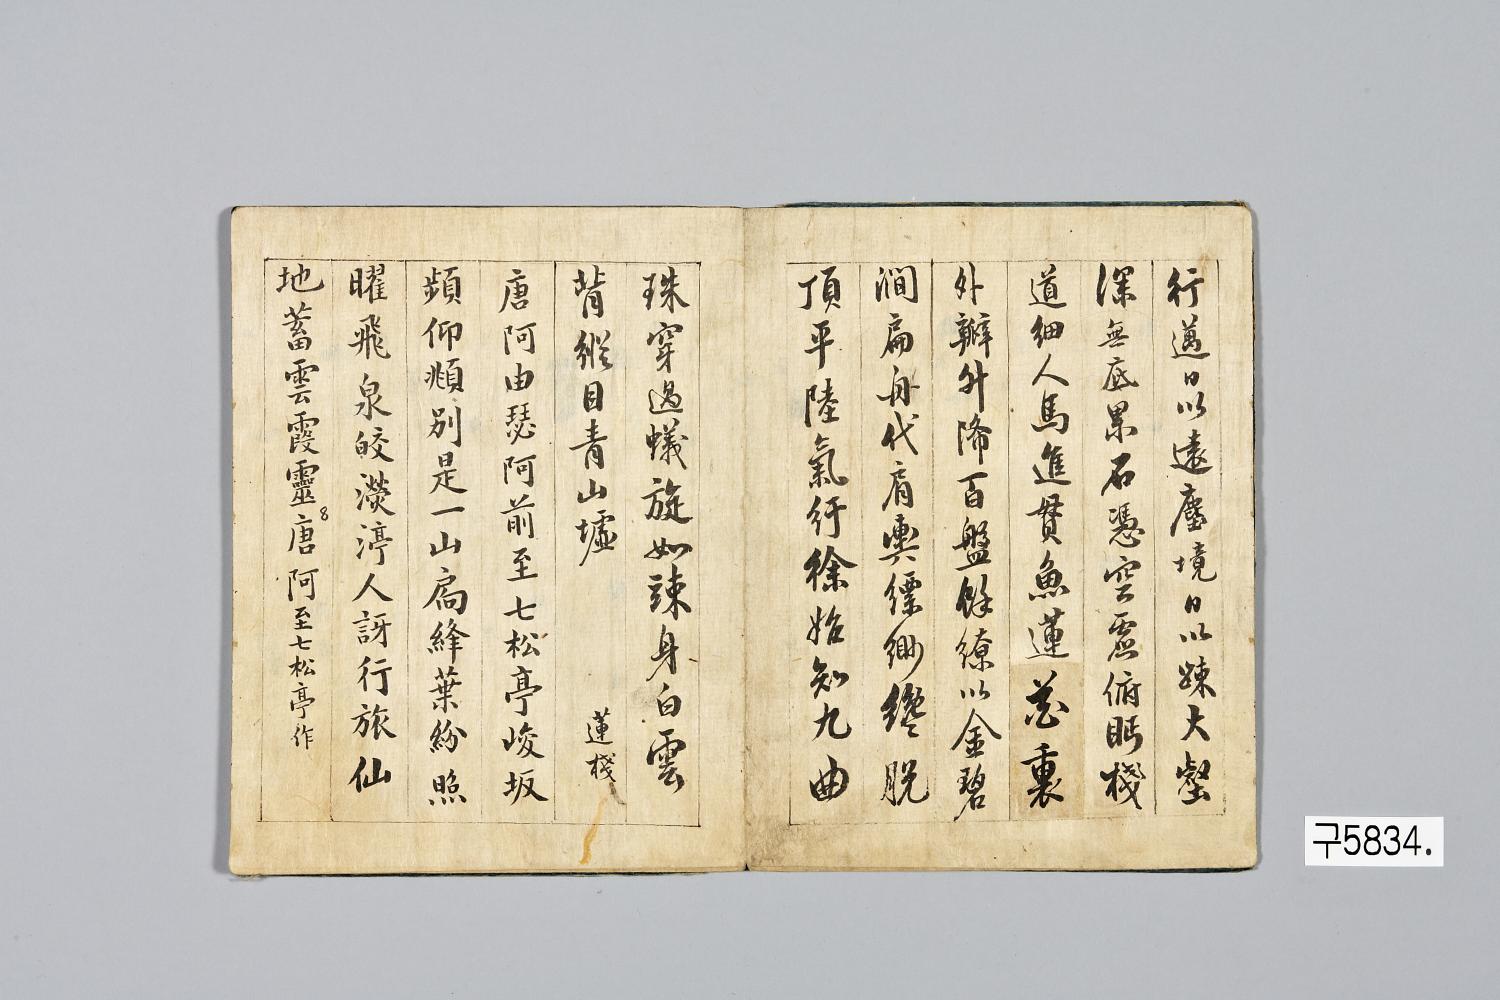 行邁日以遠塵境日以疎大壑
深無底累石憑空虛俯眄棧
道細人馬進貫魚蓮花裏
外瓣升降百盤餘繚以金碧
澗扁舟代肩輿縹緲纔脫
頂平陸氣紆徐始知九曲
珠穿過蟻旋如竦身白雲
背縱目青山墟 蓮棧
唐阿由瑟阿前至七松亭峻坂
頻仰頫別是一山扃絳葉紛照
曜飛泉皎濙渟人訝行旅仙
地蓄雲霞靈 唐阿至七松亭作
구5834.